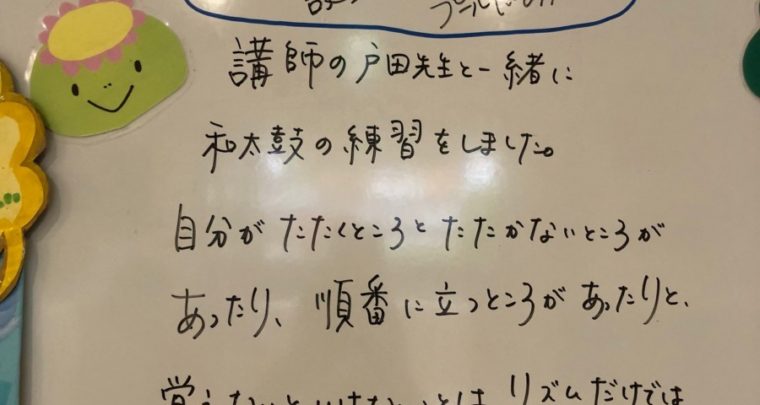 講師の戸田先生と一緒に
和太鼓の練習をしました。
自分がたたくところとたたかないところが
あったり、順番に立つところがあったりと、
覚えないといけないことは、リズムだけでは